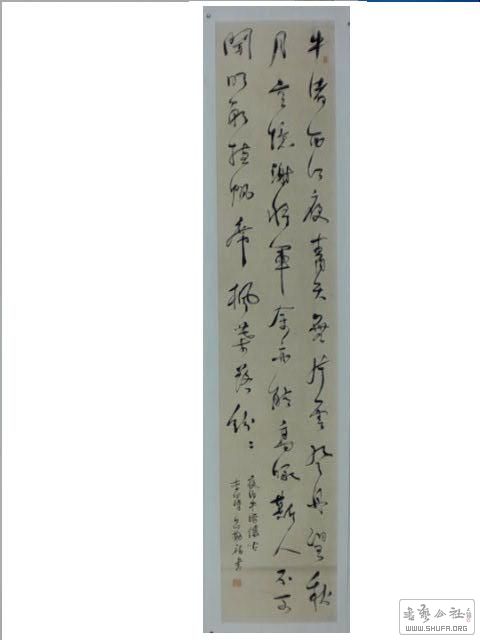 牛渚西江夜青天無片雲登舟望秋
月空憶謝將軍余亦能高詠斯人不可
聞明朝挂帆席楓葉落紛〻
夜泊牛渚懷古
李白詩 書
書藝公社
WWW.SHUFA.ORG